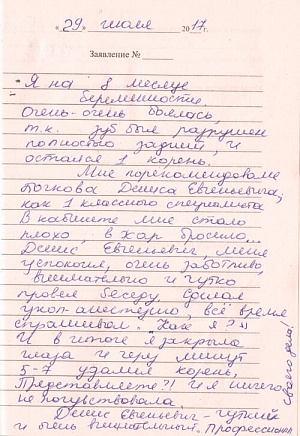 «29» июля 2017г.
Заявление №
Я на 8 месяце
беременности.
Очень-очень боялась,
т.к. зуб был разрушен
полностью задний, и
остался 1 корень.
Мне порекомендовали
Дениса Евгеньевича,
как 1 классного специалиста
В кабинете мне стало
плохо, в жар бросило...
Денис Евгеньевич, меня
успокоил, очень заботливо,
внимательно и чутко
провел беседу, сделал
укол-анестезию, всё время
спрашивал. "Как я?"
И в итоге я закрыла
глаза и через минут
5-7 удалил корень.
Представляете?! И я ничего
не почувствовала
Денис Евгеньевич - чуткий
и очень внимательный. Профессионал
своего дела!